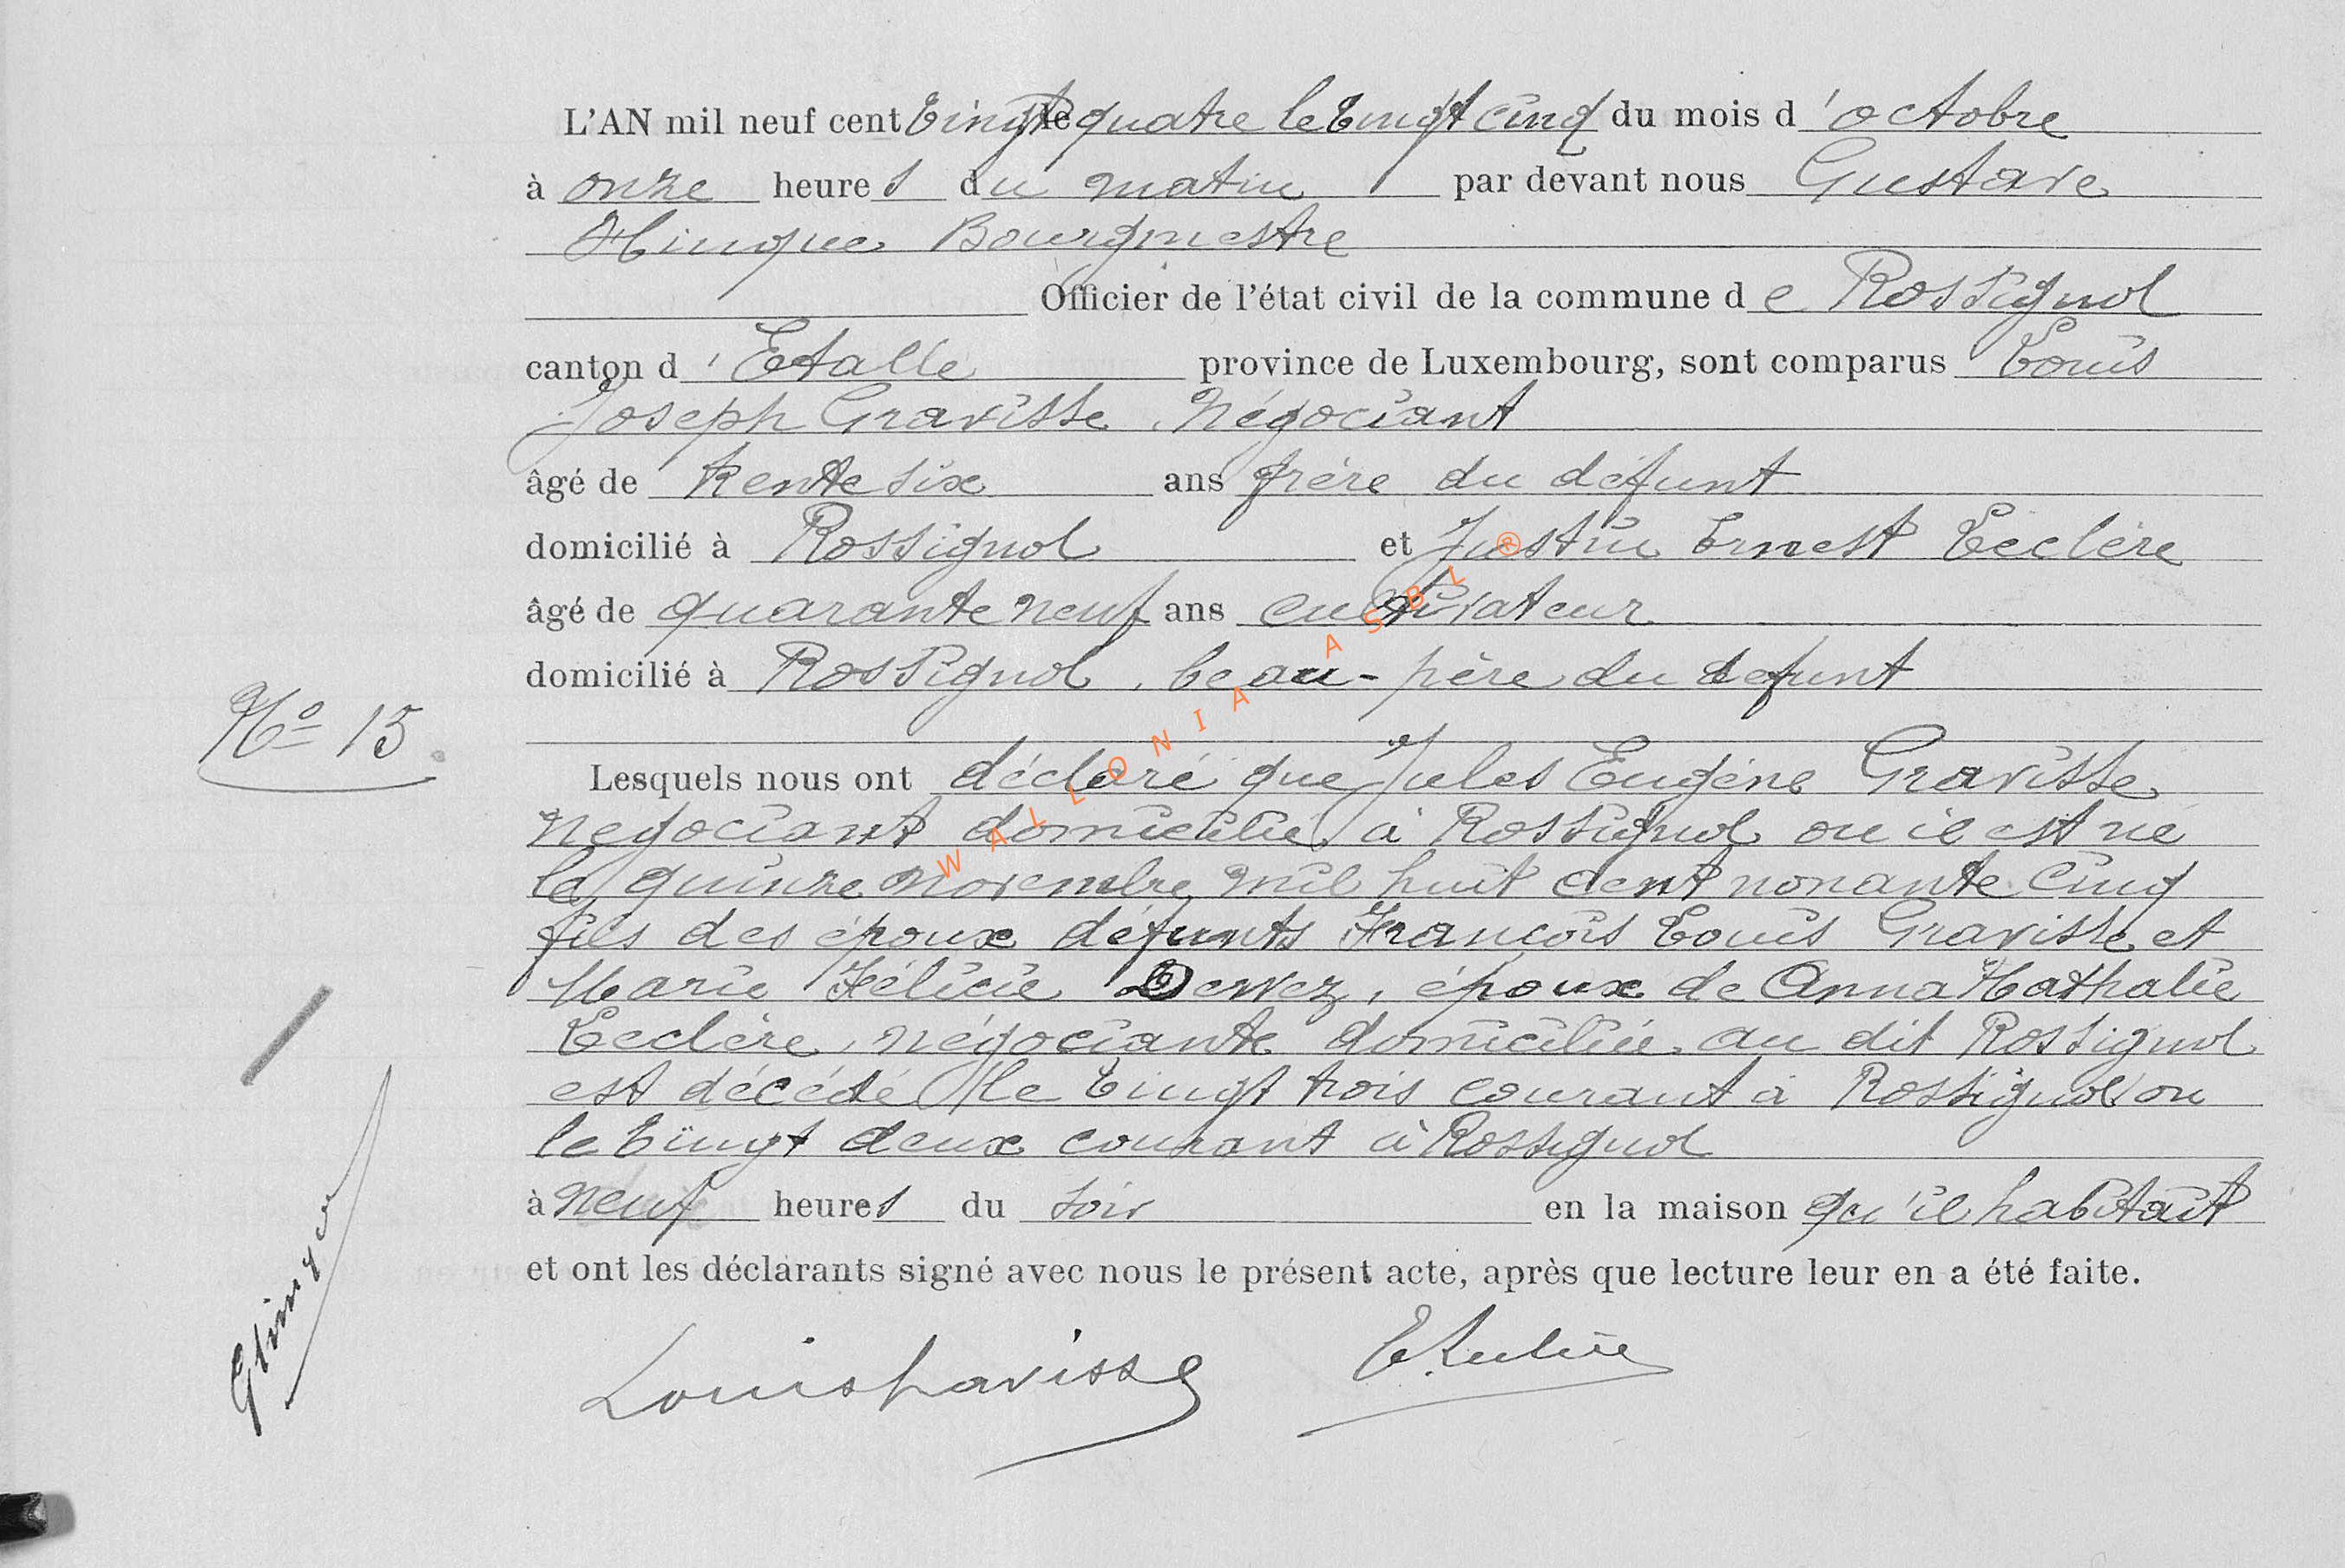 L'AN mil neuf cent Vingt quatre le Vingt cinq du mois d'octobre
à onze heures du matin par devant nous Gustave
Hinque Bourgmestre
Officier de l'état civil de la commune de Rossignol
canton d'Etalle province de Luxembourg, sont comparus Louis
Joseph Gravisse Négociant
âgé de trente six ans frère du défunt
domicilié à Rossignol et Justin Ernest Leclère
âgé de quarante neuf ans cultivateur
domicilié à Rossignol, beau-père du defunt
No 15.
Lesquels nous ont déclaré que Jules Eugène Gravisse
negociant domicilié à Rossignol ou il est né
le quinze Novembre mil huit cent nonante cinq
fils des époux défunts François Louis Gravisse et
Marie Félicie Dervez, époux de Anna Nathalie
Leclère, négociante domiciliée au dit Rossignol
est décédé le Vingt trois courant à Rossignol ou
le Vingt deux courant à Rossignol
à neuf heures du soir en la maison qu'il habitait
et ont les déclarants signé avec nous le présent acte, après que lecture leur en a été faite.
Louis Gravisse
WALLONIA ASBL ®